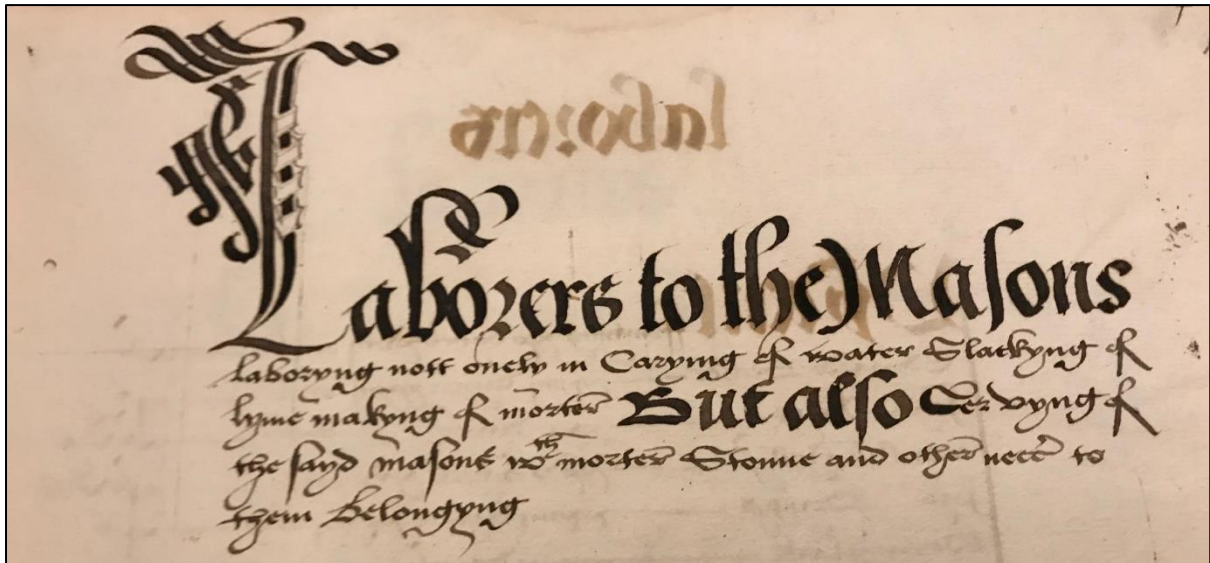 laborers
Laborers to the Masons
laboryng nott onely in Caryyng of water Slackyng of
lyme makyng of morter But also Servyng of
the sayd masons wth morter Stonne and other necc to
them Belongyng